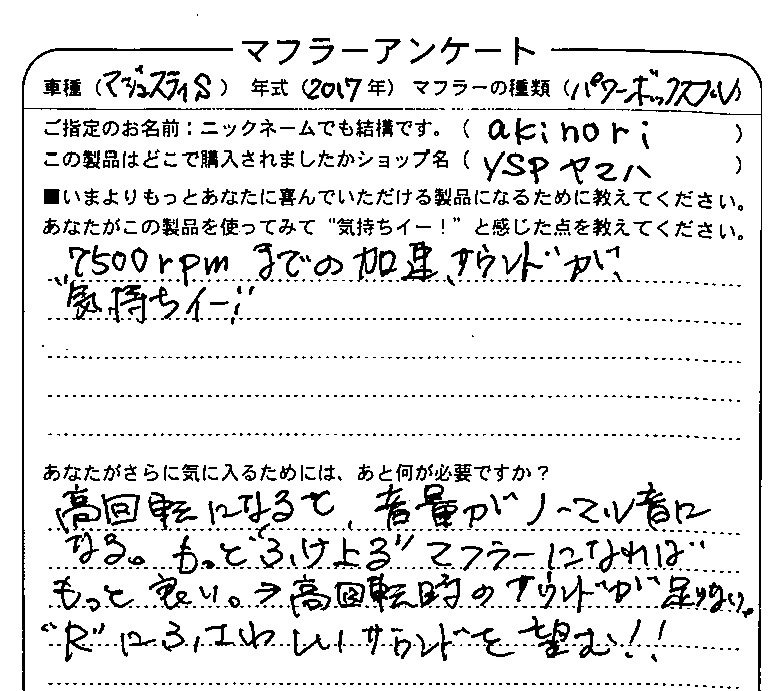 マフラーアンケート
車種（マジェスティS）年式（2017年）マフラーの種類（パワーボックスフル）
ご指定のお名前：ニックネームでも結構です。（akinori）
この製品はどこで購入されましたかショップ名（YSPヤマハ）
■いまよりもっとあなたに喜んでいただける製品になるために教えてください。
あなたがこの製品を使ってみて"気持ちイー！"と感じた点を教えてください。
7500rpmまでの加速、サウンドが、
"気持ちイー！"
あなたがさらに気に入るためには、あと何が必要ですか？
高回転になると、音量がノーマル音に
なる。もっと"ふけよる"マフラーになれば
もっと良い。→高回転時のサウンドが足りない。
"R"にふさわしいサウンドを望む！！